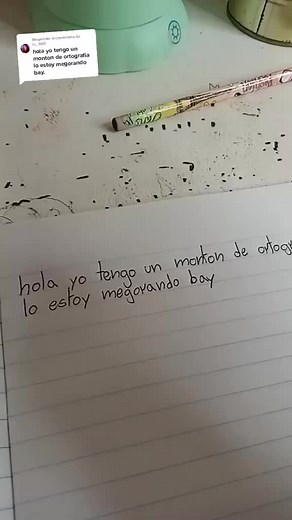 hola yo tengo un
monton de ortografia
lo estoy megorando
bay.
hola yo tengo un monton de ortogr
lo estoy megorando bay